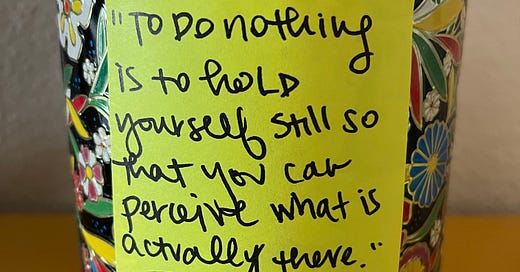 "To Do nothing
is to hoLD
yourself still so
that you can
perceive what is
actually there."